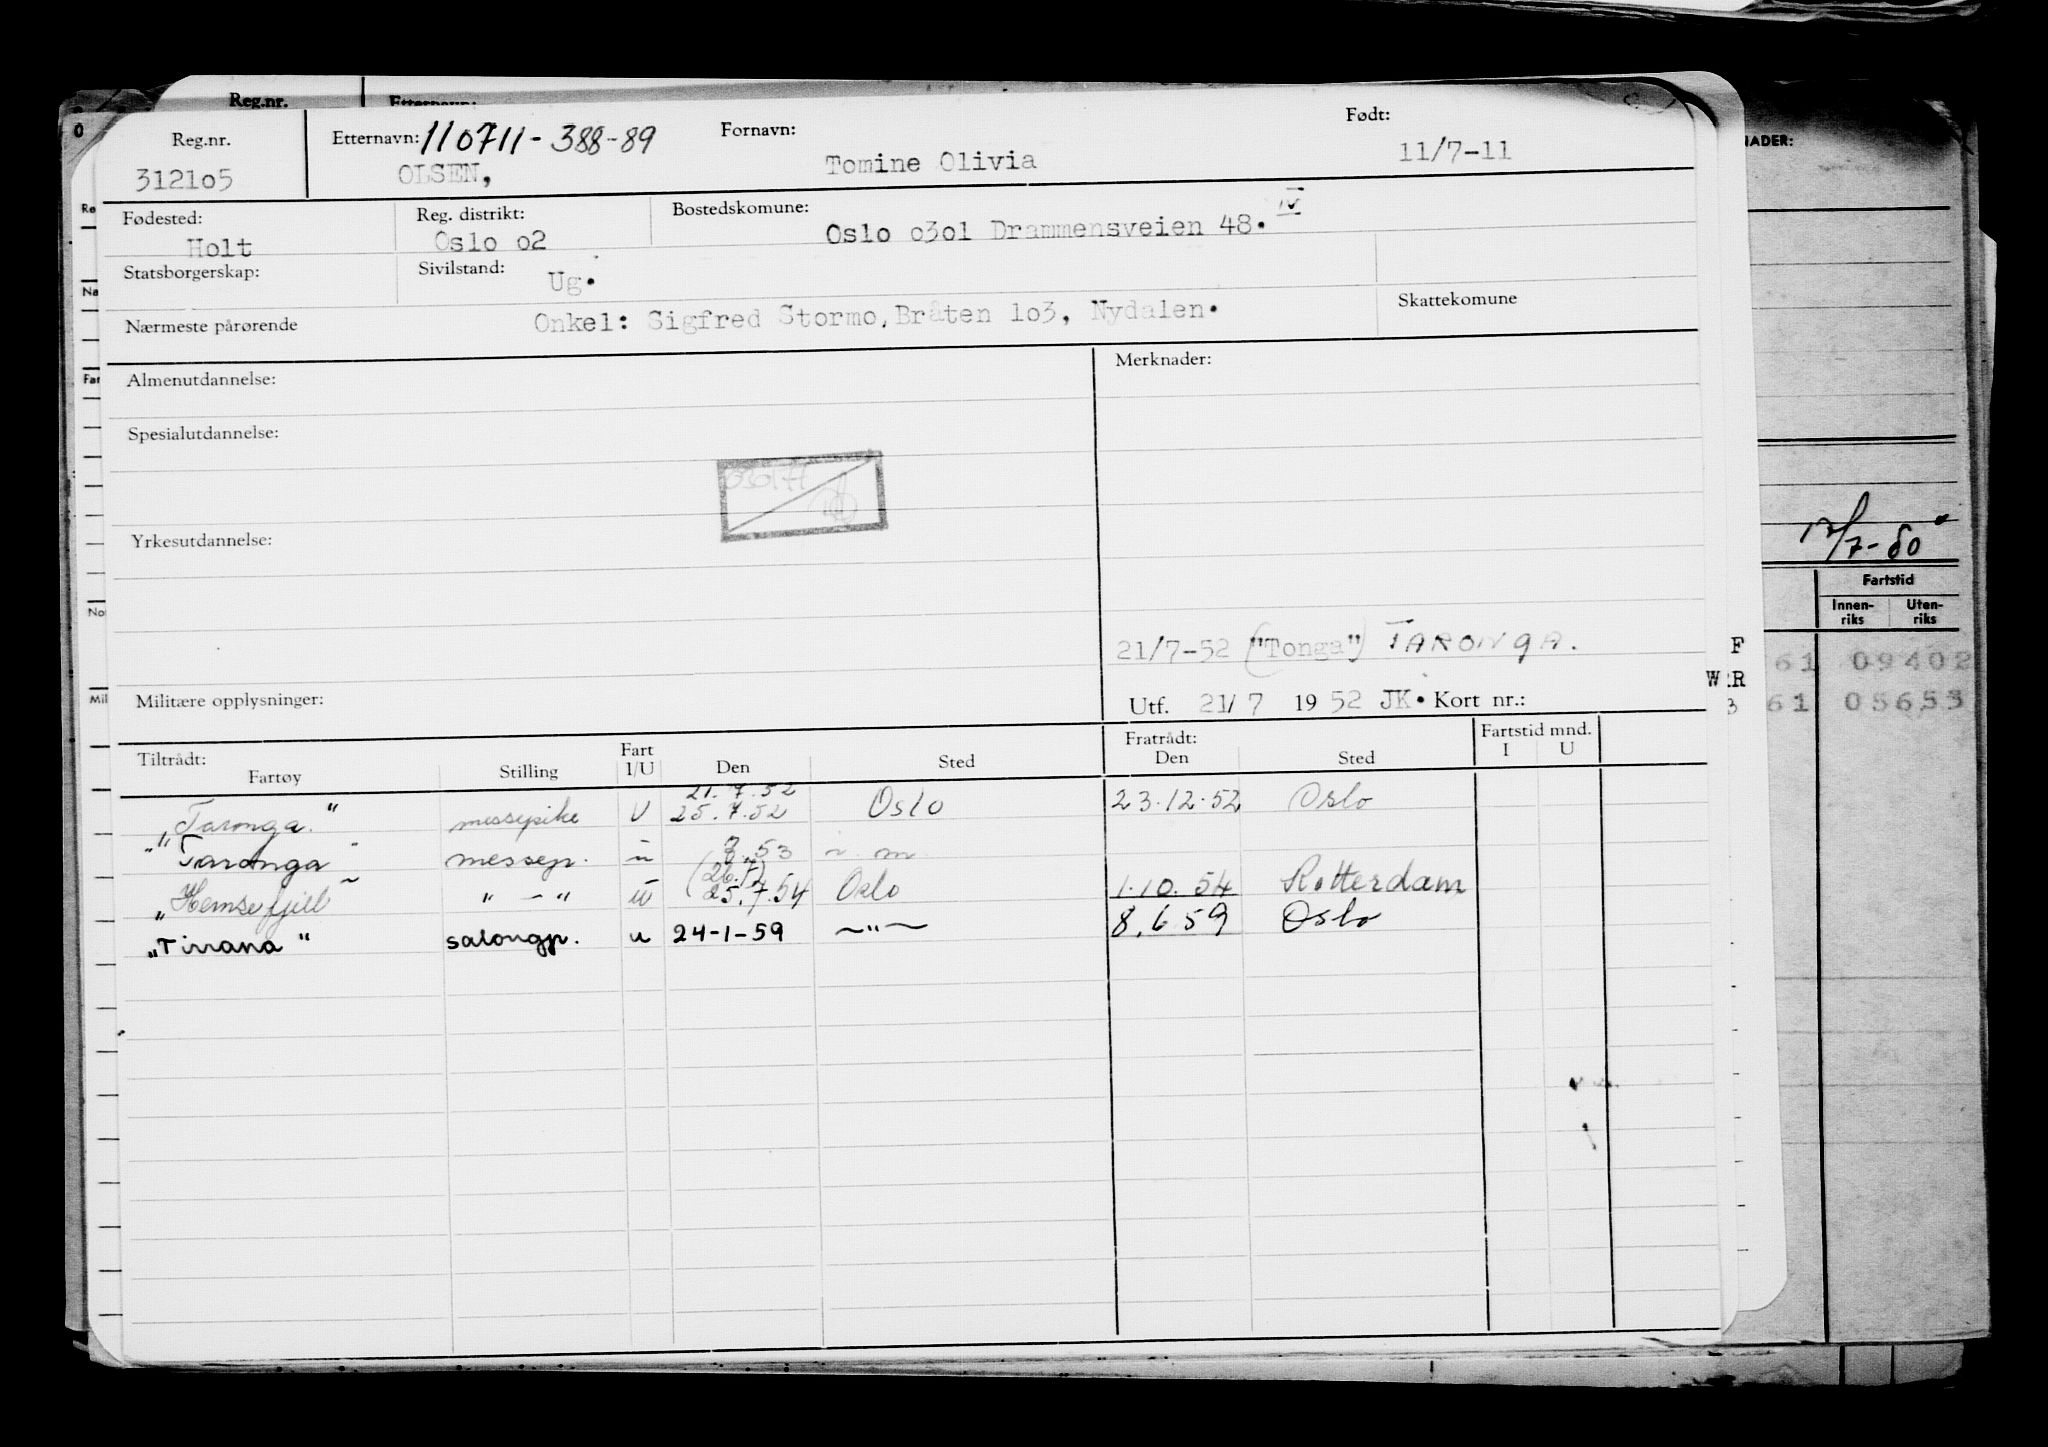 Reg.nr. Etternavn:
Reg.nr. Etternavn: 110711-388-89 Fornavn: Født:
3121o5 OLSEN, Tomine Olivia 11/7-11
NADER:
Fødested: Reg. distrikt: Bostedskomune:
Holt Oslo o2 Oslo o3o1 Drammensveien 48. IV
Statsborgerskap: Sivilstand: Ug.
Nærmeste pårørende Onkel: Sigfred Stormo, Bråten 1o3, Nydalen. Skattekomune
Almenutdannelse: Merknader:
Spesialutdannelse:
Yrkesutdannelse:
12/7-60
Fartstid
Innen-riks Uten-riks
21/7-52 ("Tonga") TARONGA.
61 09402
Militære opplysninger: Utf. 21/ 7 19 52 JK. Kort nr.:
61 05653
Tiltrådt: Fratrådt: Fartstid mnd.
Fartøy Stilling Fart I/U Den Sted Den Sted I U
21.7.52
"Taronga." messepike U 25.7.52 Oslo 23.12.52 Oslo
"Taronga" messep. u 53
(26.7)
"Hemsefjell" " - " u 25.7.54 Oslo 1.10.54 Rotterdam
"Tirrana" salongp. u 24-1-59 -"- 8.6.59 Oslo